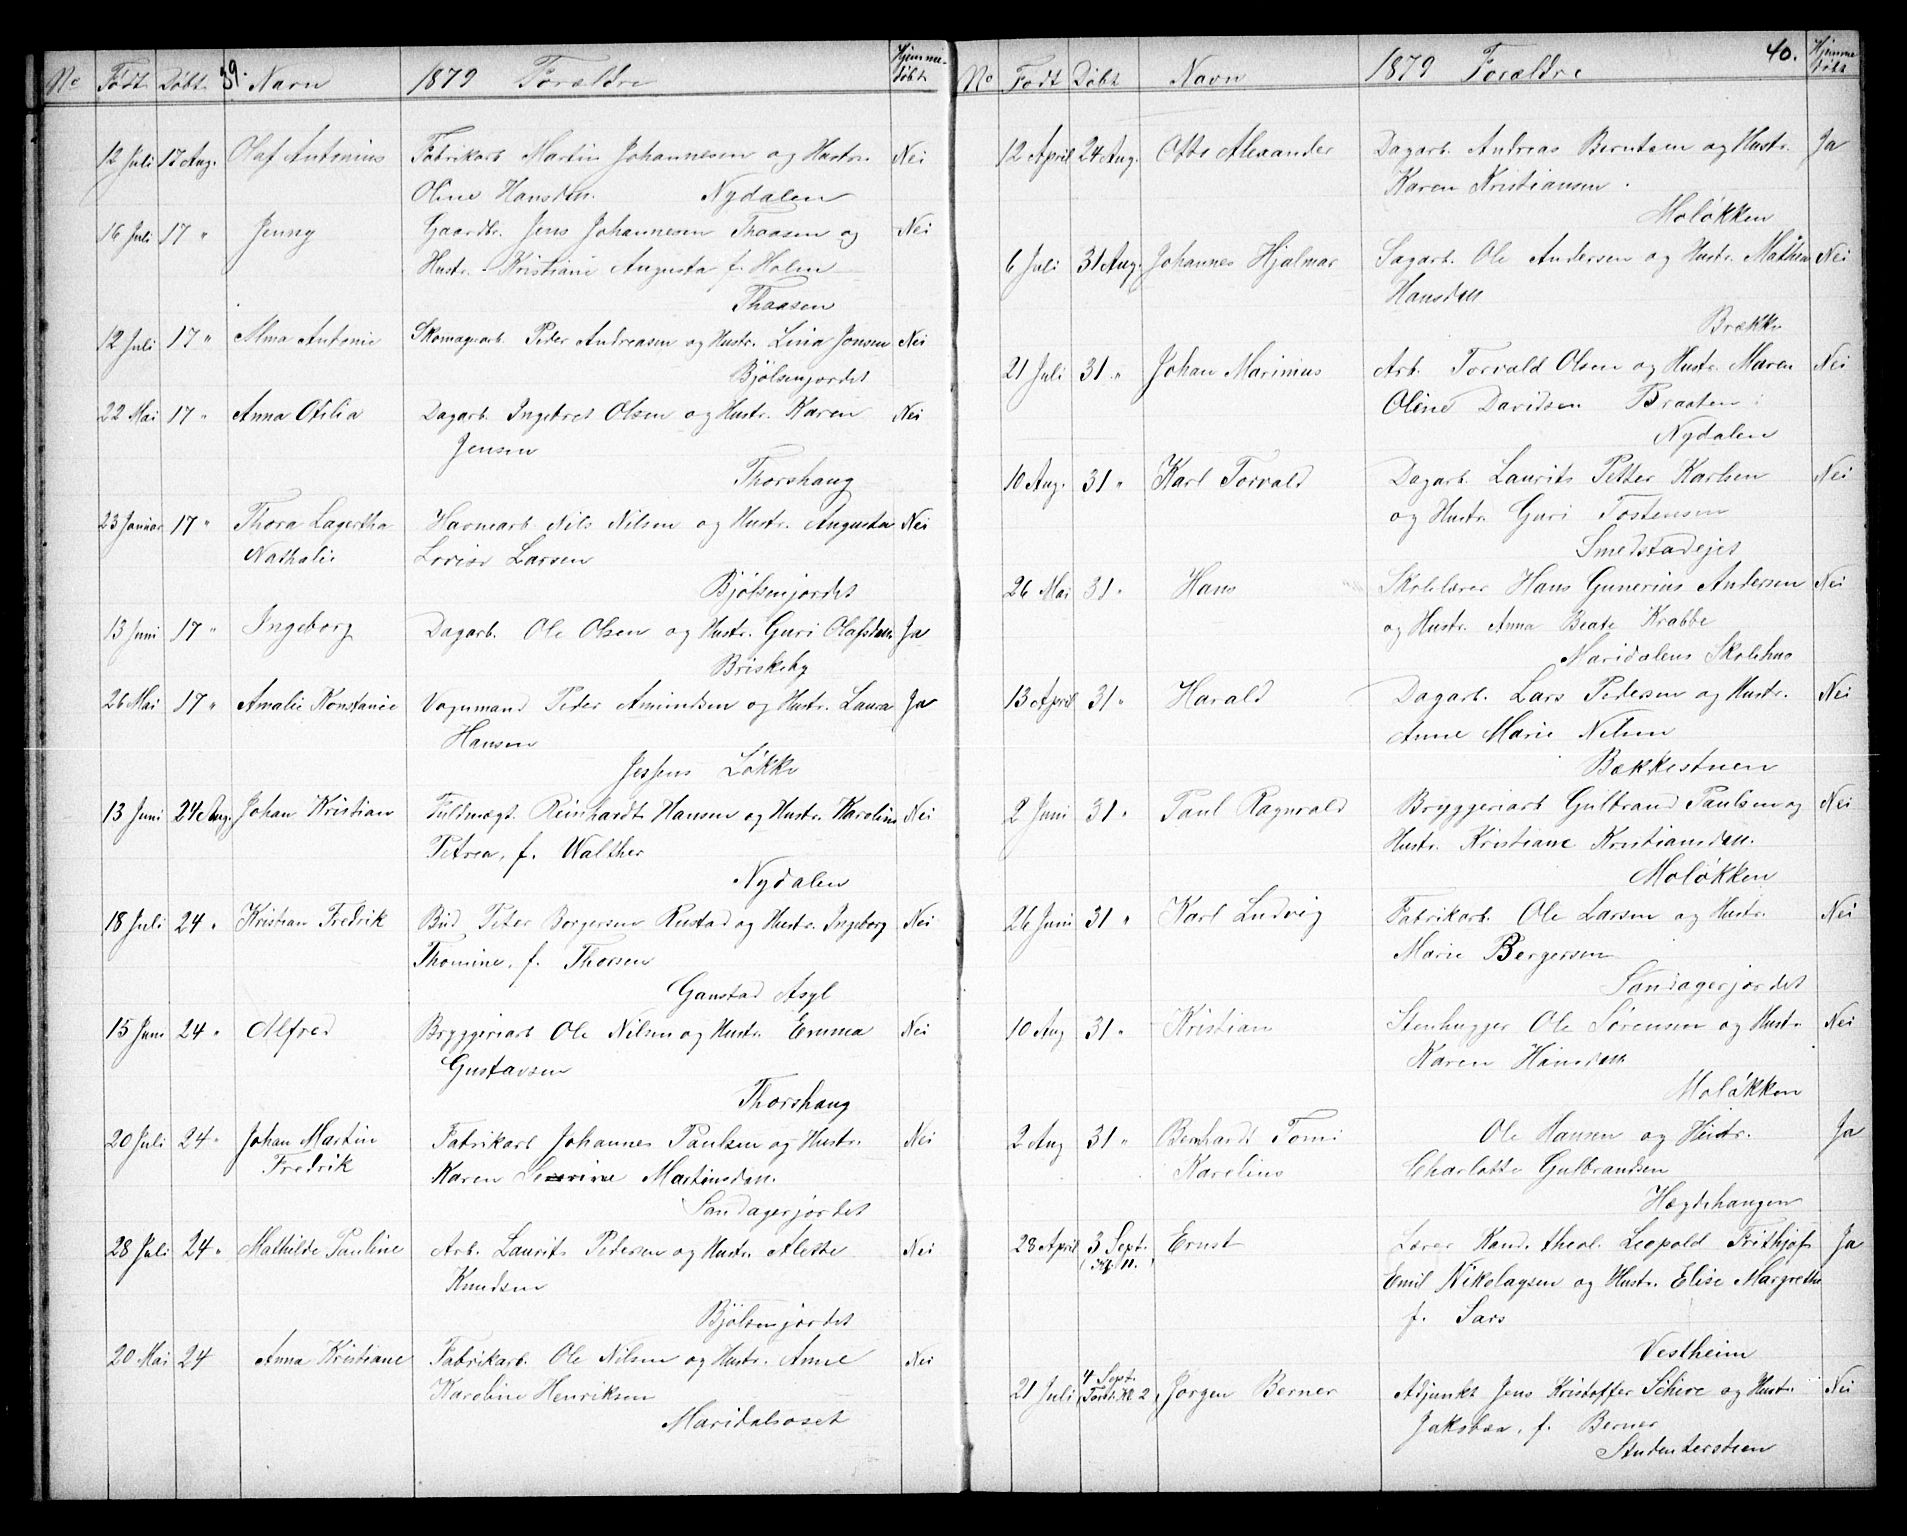 39.
No Født Døbt Navn 1879 Forældre Hjemme-døbt
12 Juli 17 Aug. Olaf Antonius Fabrikarb. Martin Johannesen og Hustr. Nei
Oline Hansdttr. Nydalen
16 Juli 17 " Jenny Gaardbr. Jens Johannesen Thaasen og Nei
Hustr. Kristiane Augusta f. Holm
Thaasen
12 Juli 17 " Alma Antonie Skomagerarb. Peder Andreasen og Hustr. Lina Jonsen Nei
Bjølsenjordet
22 Mai 17 " Anna Otilia Dagarb. Ingebret Olsen og Hustr. Karen Nei
Jensen
Thorshaug
23 Januar 17 " Thora Lagertha Havnearb. Nils Nilsen og Hustr. Augusta Nei
Nathalie Lovise Larsen
Bjølsenjordet
13 Juni 17 " Ingeborg Dagarb. Ole Olsen og Hustr. Guri Olafsdttr. Ja
Briskeby
26 Mai 17 " Amalie Konstance Vognmand Peder Amundsen og Hustr. Laura Ja
Hansen
Jessens Løkke
13 Juni 24 Aug. Johan Kristian Fuldmægt. Reinhardt Hansen og Hustr. Karoline Nei
Petrea, f. Walther
Nydalen
18 Juli 24 " Kristian Fredrik Bud Peter Borgersen Rustad og Hustr. Ingeborg Nei
Thomine, f. Thorsen
Ganstad Asyl
15 Juni 24 " Alfred Bryggeriarb Ole Nilsen og Hustr. Emma Nei
Gustavsen
Thorshaug
20 Juli 24 " Johan Martin Fabrikarb Johannes Paulsen og Hustr. Nei
Fredrik Karen Severine Martinsdttr.
Sandagerjordet
28 Juli 24 " Mathilde Pauline Arb. Laurits Pedersen og Hustr. Alette Nei
Knudsen
Bjølsenjordet
20 Mai 24 Anna Kristiane Fabrikarb. Ole Nilsen og Hustr. Anne Nei
Karoline Henriksen
Maridalsoset
40.
No Født Døbt Navn 1879 Forældre Hjemme døbt
12 April 24 Aug. Otto Alexander Dagarb. Andreas Berntsen og Hustr. Ja
Karen Kristiansen.
Moløkken
6 Juli 31 Aug. Johannes Hjalmar Sagarb. Ole Andersen og Hustr. Mathea Nei
Hansdttr
Brække
21 Juli 31 " Johan Marinius Arb. Torvald Olsen og Hustr. Maren Nei
Oline Davidsen Braaten
Nydalen
10 Aug. 31 " Karl Torvald Dagarb. Laurits Petter Karlsen Nei
og Hustr. Guri Tostensen
Smedstadejet
26 Mai 31 " Hans Skolelærer Hans Gunerius Andersen Nei
og Hustr. Anna Beate Krabbe
Maridalens Skolehus
13 April 31 " Harald Dagarb. Lars Pedersen og Hustr. Nei
Anne Marie Nilsen
Bækkestuen
2 Juni 31 " Paul Ragnvald Bryggeriarb Gulbrand Paulsen og Nei
Hustr. Kristiane Kristiansdttr.
Moløkken
26 Juni 31 " Karl Ludvig Fabrikarb. Ole Larsen og Hustr. Nei
Marie Bergersen
Sandagerjordet
10 Aug 31 " Kristian Stenhugger Ole Sørensen og Hustr. Nei
Karen Hansdttr
Moløkken
2 Aug 31 " Bernhard Tomi Ole Hansen og Hustr. Ja
Karolius Charlotte Gulbrandsen
Hægdehaugen
28 April 3 Sept. Ernst Lærer Kand. theol. Leopold Frithjof Ja
Emil Nikolaysen og Hustr. Elise Margrethe
f. Sars
Vestheim
21 Juli 4 Sept. Torsd. Kl 2 Jørgen Berner Adjunkt Jens Kristoffer Schive og Hustr. Nei
Jakobæa, f. Berner
Studenterstien